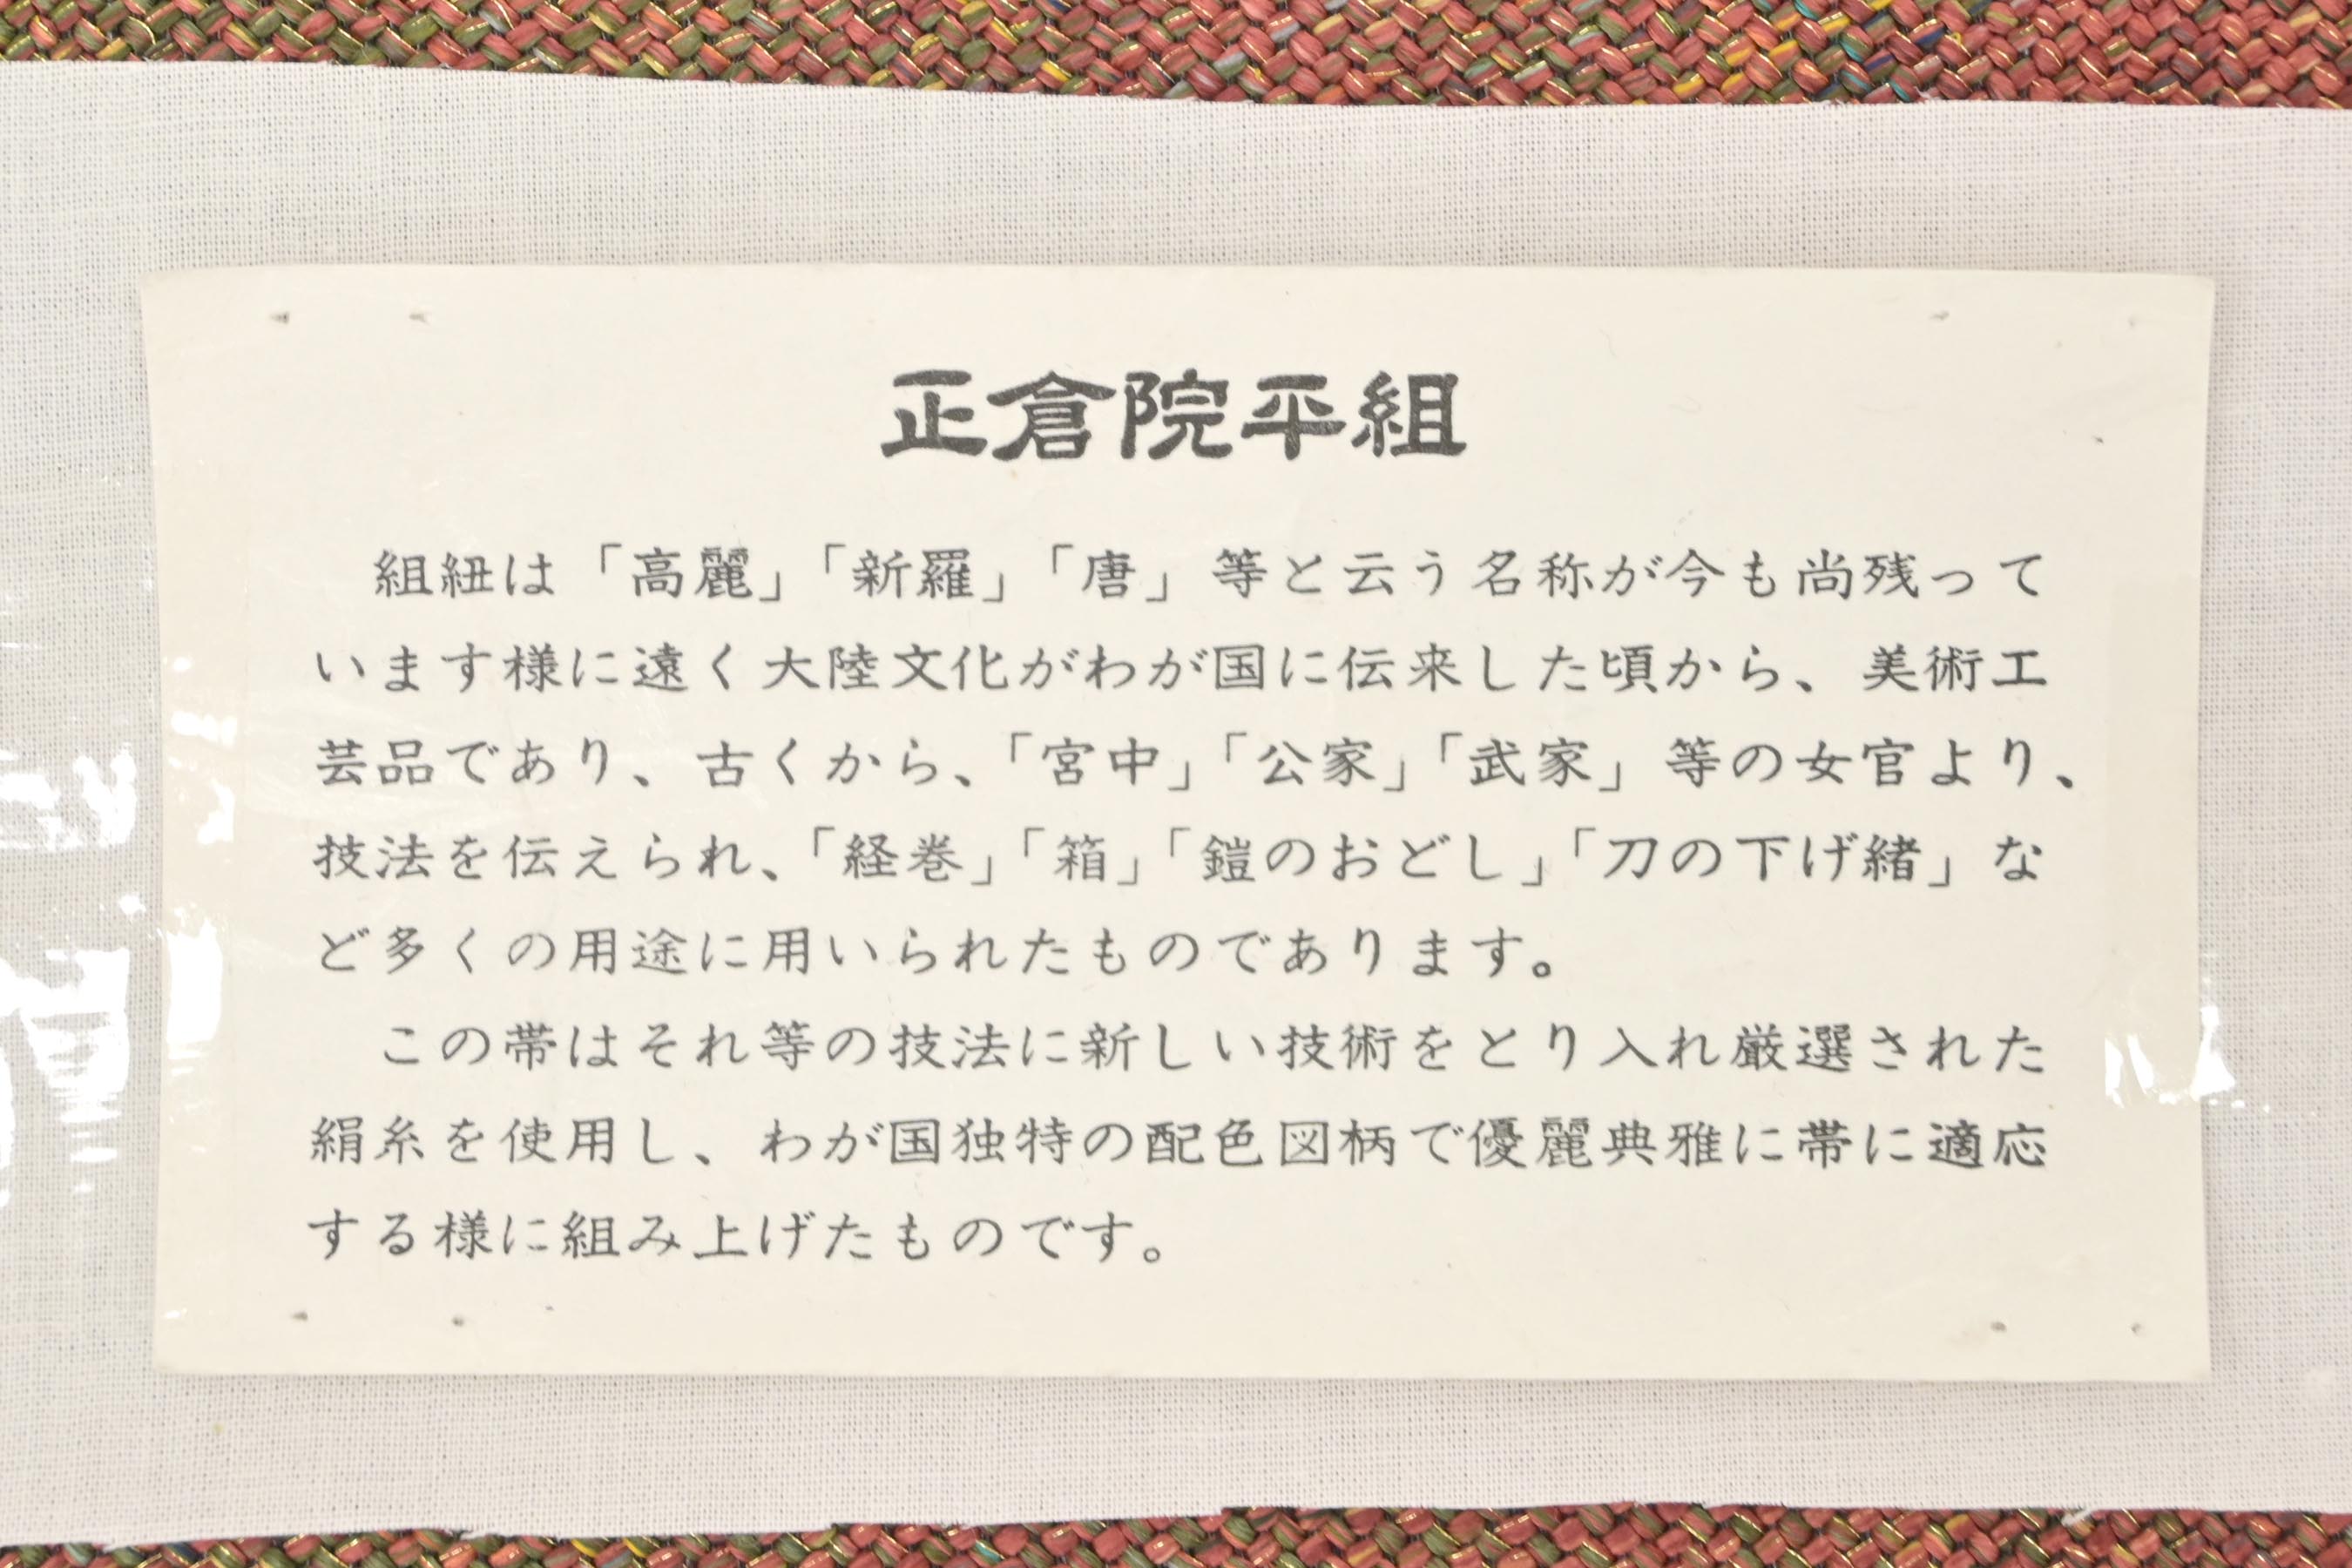 正倉院平組
組紐は「高麗」「新羅」「唐」等と云う名称が今も尚残って
います様に遠く大陸文化がわが国に伝来した頃から、美術工
芸品であり、古くから、「宮中」「公家」「武家」等の女官より、
技法を伝えられ、「経巻」「箱」「鎧のおどし」「刀の下げ緒」な
ど多くの用途に用いられたものであります。
この帯はそれ等の技法に新しい技術をとり入れ厳選された
絹糸を使用し、わが国独特の配色図柄で優麗典雅に帯に適応
する様に組み上げたものです。